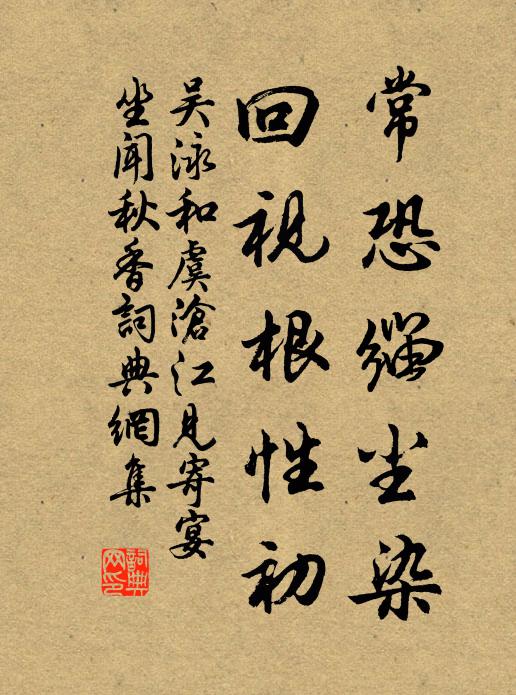 常恐缁尘染
回視根性初
吴泳和虞滄江見寄宴
坐闻秋香詞典網集
詞典
网印